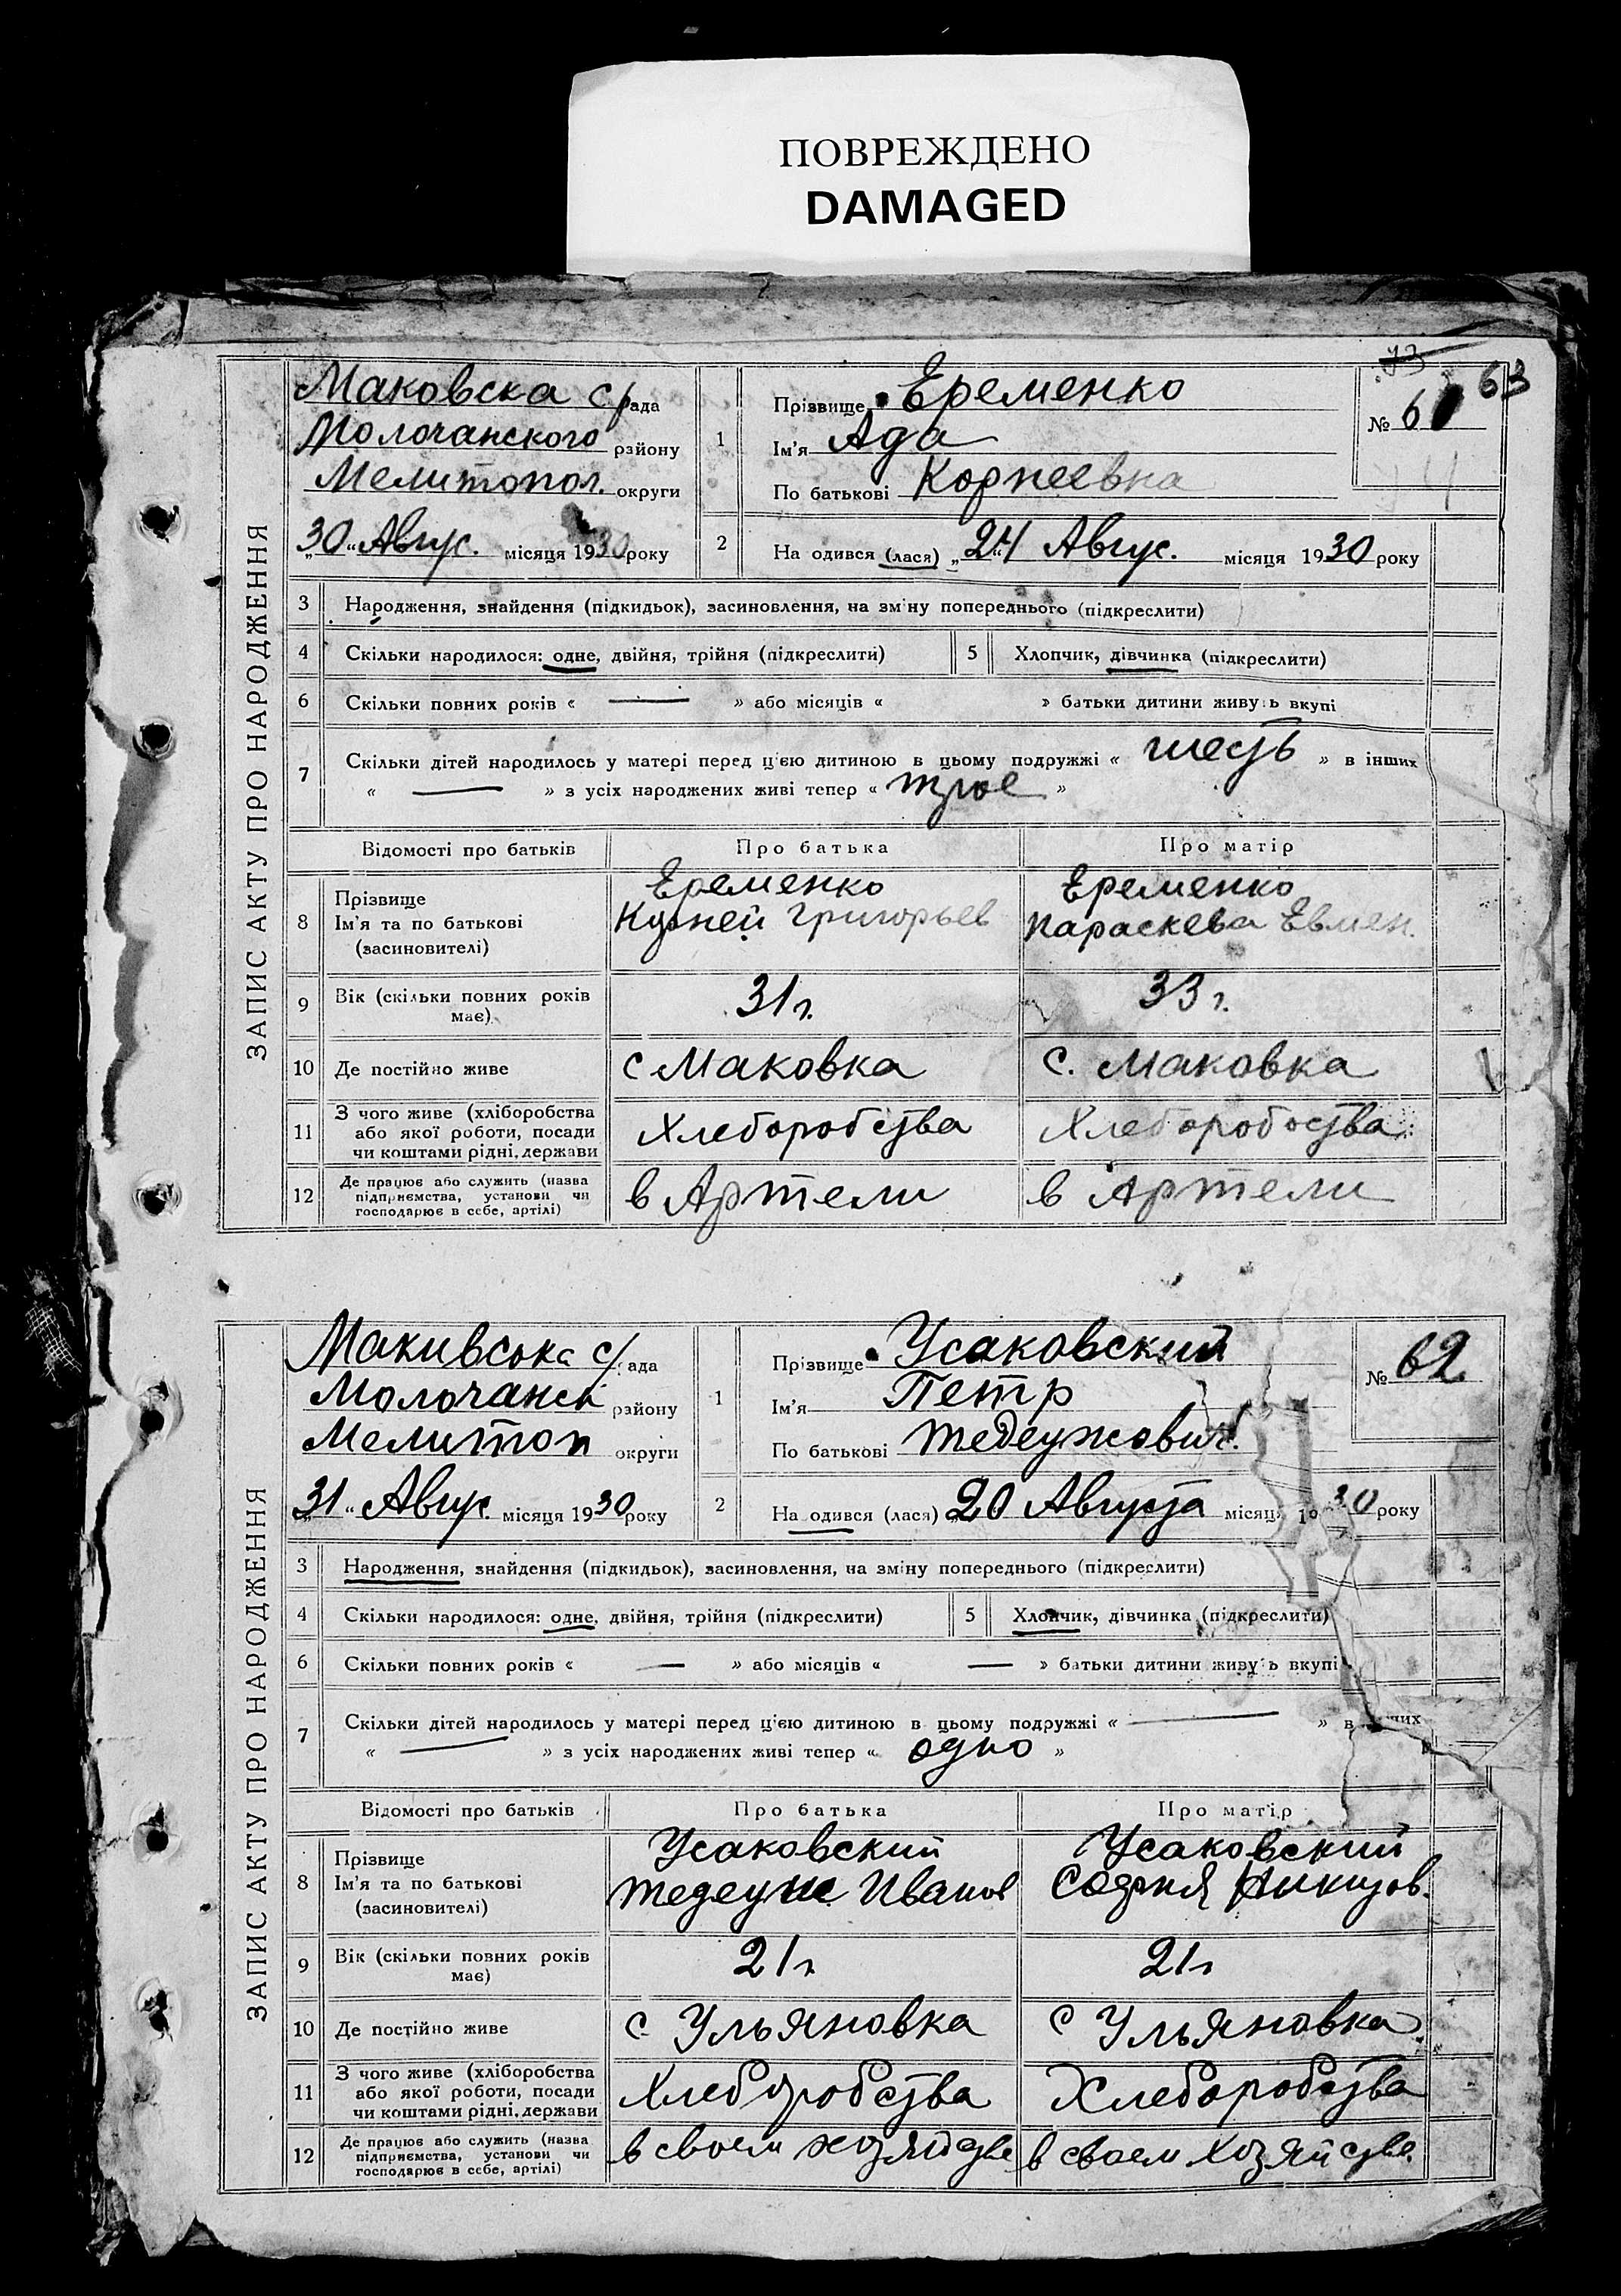 ПОВРЕЖДЕНО
DAMAGED
63
ЗАПИС АКТУ ПРО НАРОДЖЕННЯ
Маковска с/рада
Молочанского району
Мелитопол. округи
„30“ Авгус. місяця 1930 року
1
Прізвище Еременко
Ім'я Ада
По батькові Корнеевна
№ 61
2
На одився (лася) „24“ Авгус. місяця 1930 року
3 Народження, знайдення (підкидьок), засиновлення, на зміну попереднього (підкреслити)
4 Скільки народилося: одне, двійня, трійня (підкреслити) 5 Хлопчик, дівчинка (підкреслити)
6 Скільки повних років « — » або місяців « » батьки дитини живуть вкупі
7 Скільки дітей народилось у матері перед цією дитиною в цьому подружжі « шесть » в інших
« — » з усіх народжених живі тепер « трое »
Відомості про батьків Про батька Про матір
8 Прізвище Еременко Еременко
Ім'я та по батькові Корней Григорьев Параскева Евмен.
(засиновителі)
9 Вік (скільки повних років має) 31 г. 33 г.
10 Де постійно живе с Маковка с. Маковка
11 З чого живе (хліборобства або якої роботи, посади чи коштами рідні, держави Хлеборобства Хлеборобоства
12 Де працює або служить (назва підприємства, установи чи господарює в себе, артілі) в Артели в Артели
ЗАПИС АКТУ ПРО НАРОДЖЕННЯ
Макивська с/рада
Молочанск району
Мелитоп округи
„31“ Авгус. місяця 1930 року
1
Прізвище Усаковский
Ім'я Петр
По батькові Тедеушович.
№ 62
2
На одився (лася) „20 Августа місяця 1930 року
3 Народження, знайдення (підкидьок), засиновлення, на зміну попереднього (підкреслити)
4 Скільки народилося: одне, двійня, трійня (підкреслити) 5 Хлопчик, дівчинка (підкреслити)
6 Скільки повних років « — » або місяців « — » батьки дитини живуть вкупі
7 Скільки дітей народилось у матері перед цією дитиною в цьому подружжі « — » в інших
« — » з усіх народжених живі тепер « одно »
Відомості про батьків Про батька Про матір
8 Прізвище Усаковский Усаковский
Ім'я та по батькові Тедеуш Иванов София
(засиновителі)
9 Вік (скільки повних років має) 21 г 21 г
10 Де постійно живе с. Ульяновка с Ульяновка
11 З чого живе (хліборобства або якої роботи, посади чи коштами рідні, держави Хлеборобства Хлеборобства
12 Де працює або служить (назва підприємства, установи чи господарює в себе, артілі) в своем хозяйстве в своем хозяйстве.